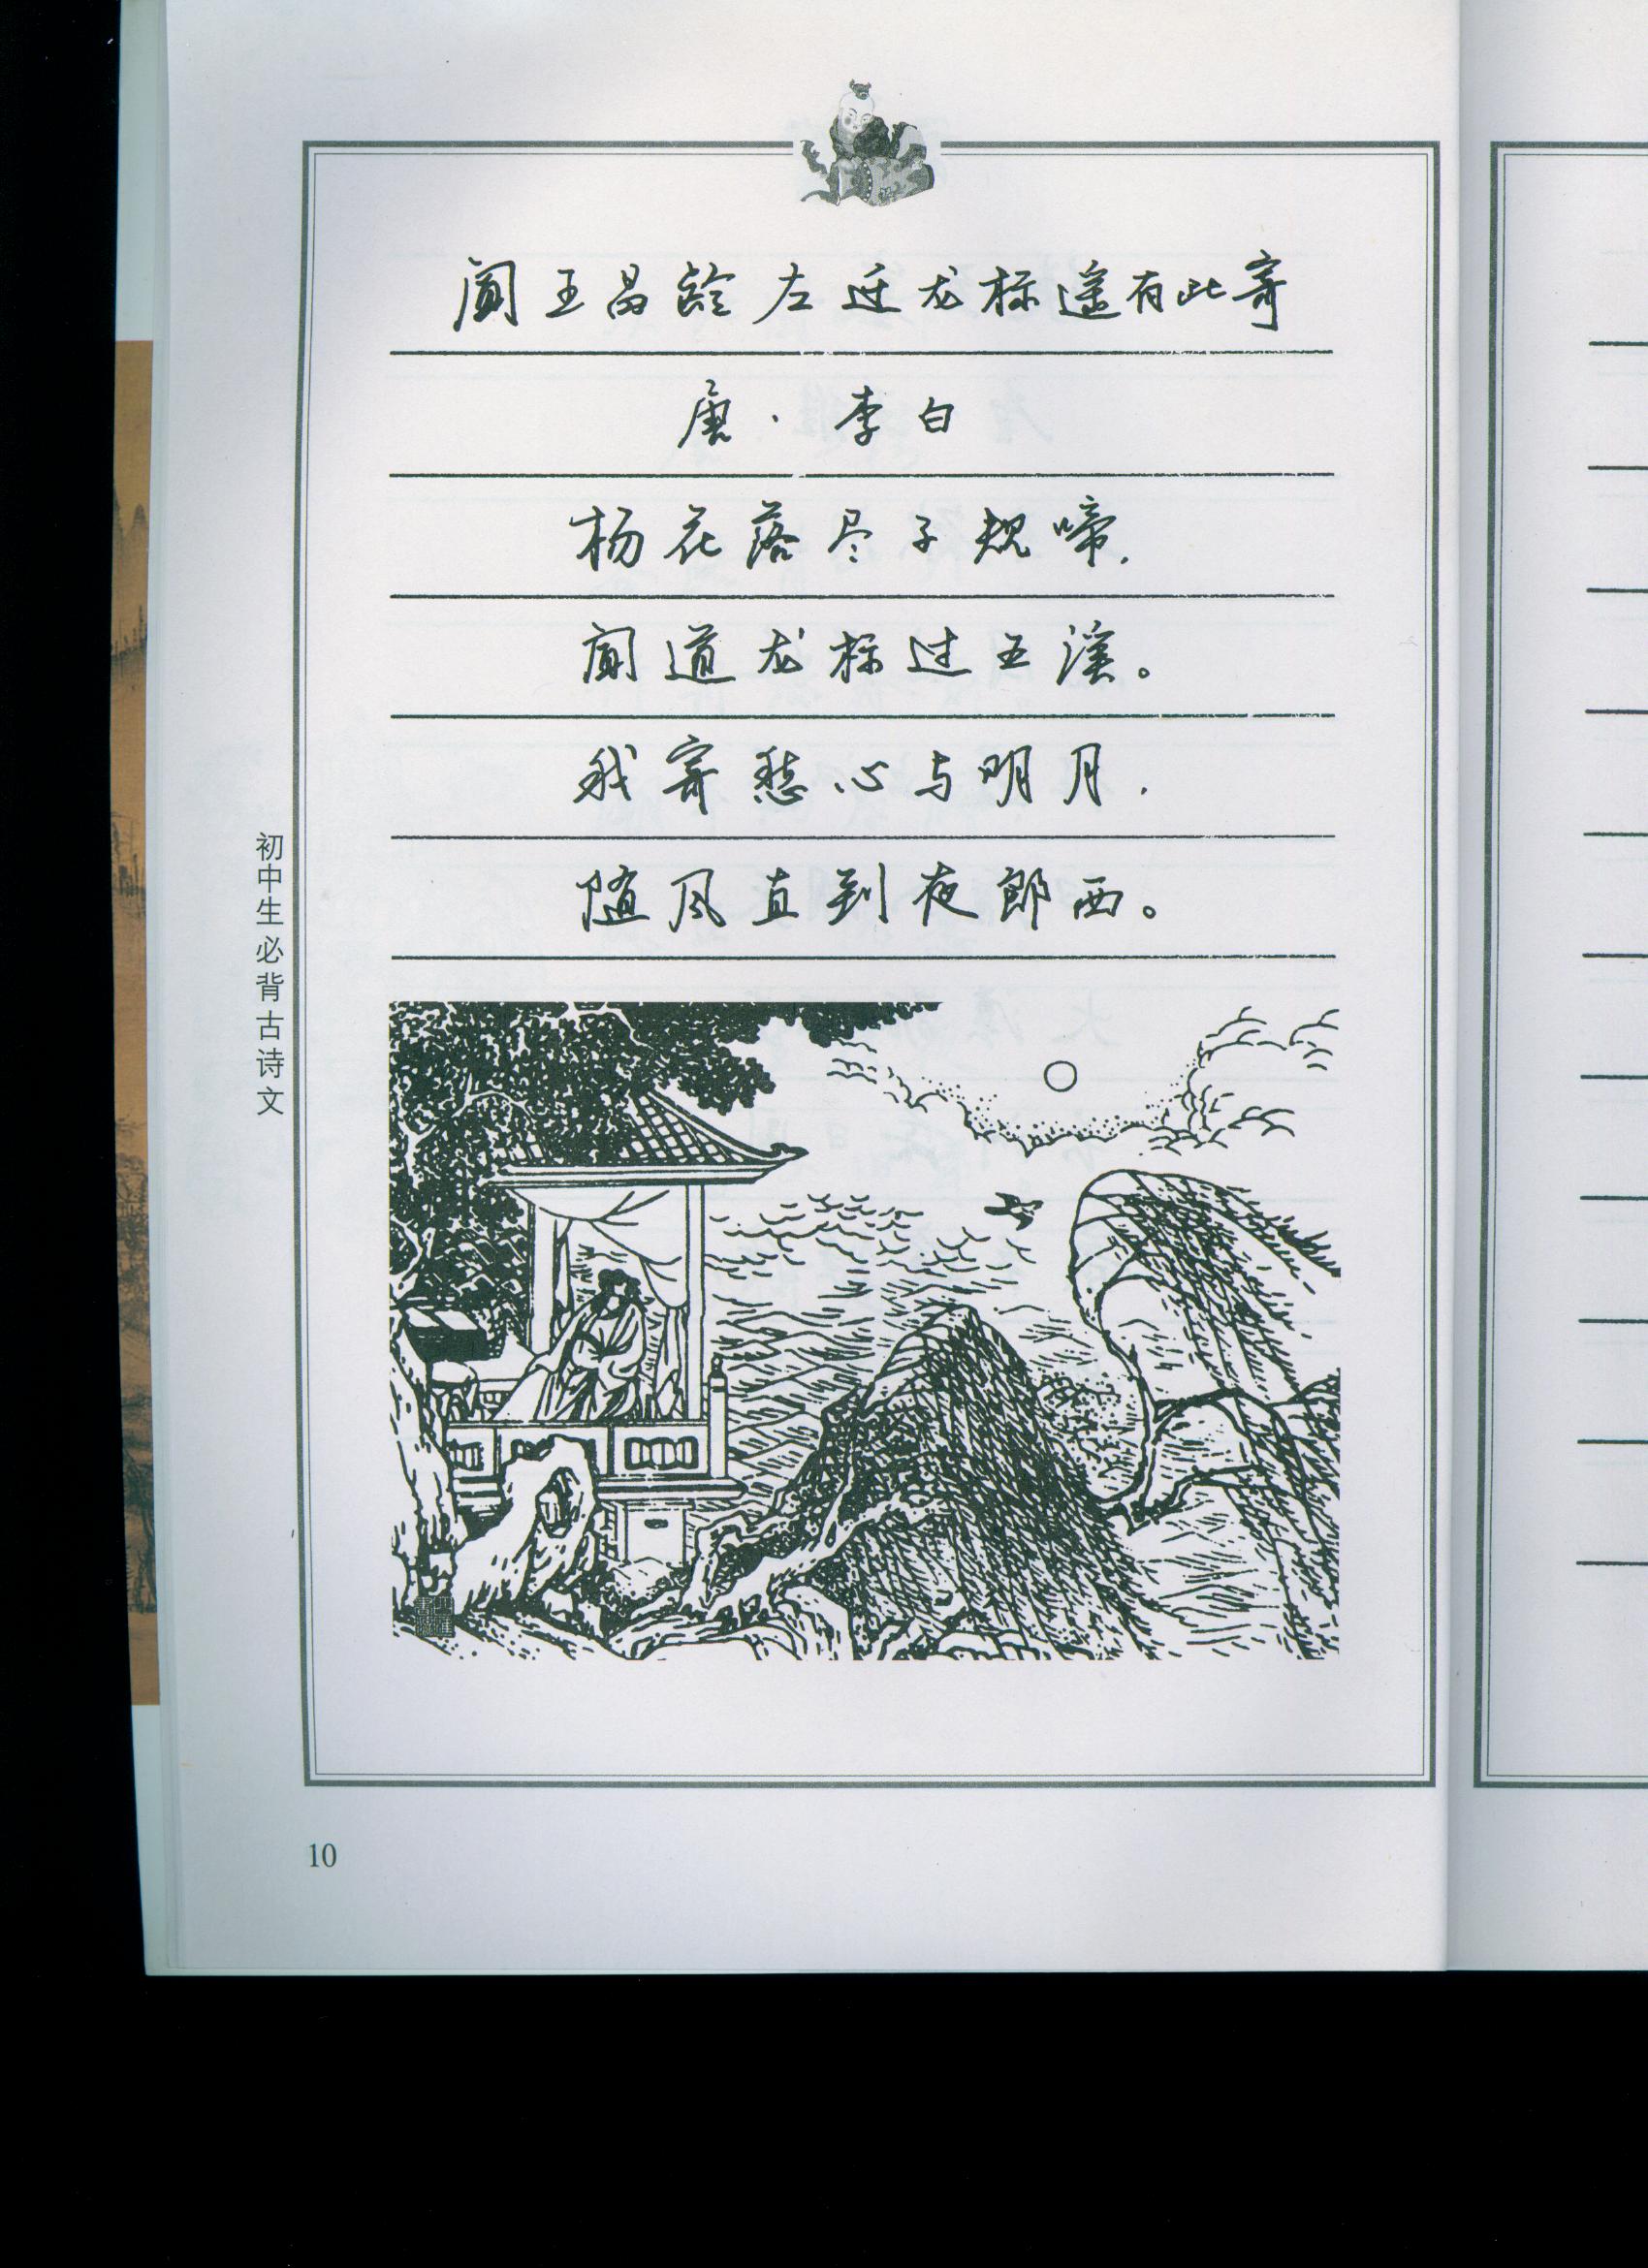 闻王昌龄左迁龙标遥有此寄
唐·李白
杨花落尽子规啼，
闻道龙标过五溪。
我寄愁心与明月，
随风直到夜郎西。
初中生必背古诗文
10